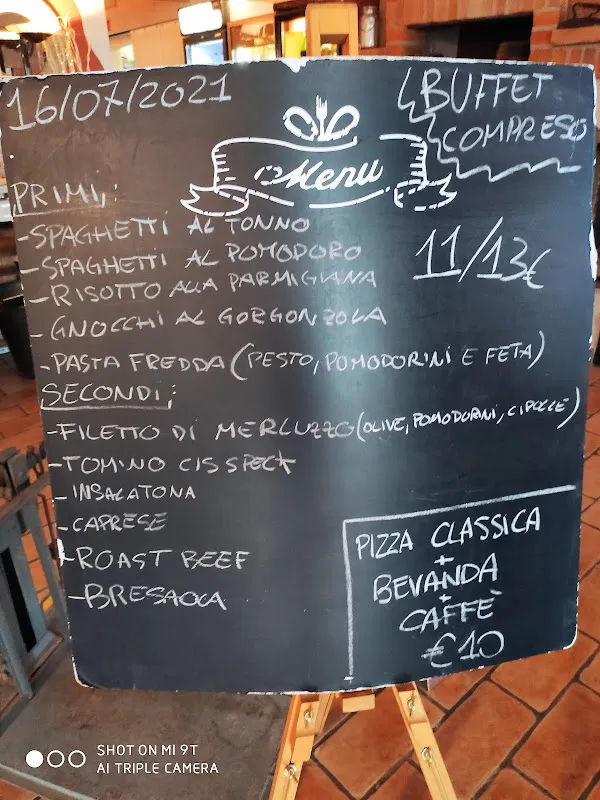 16/07/2021
BUFFET
COMPRESO
Menu
PRIMI:
-SPAGHETTI AL TONNO
-SPAGHETTI AL POMODORO
-RISOTTO ALLA PARMIGIANA
-GNOCCHI AL GORGONZOLA
-PASTA FREDDA (PESTO, POMODORINI E FETA)
11/13€
SECONDI:
-FILETTO DI MERLUZZO (OLIVE, POMODORINI, CIPOLLE)
-TOMINO C/SSPECK
-INSALATONA
-CAPRESE
-ROAST BEEF
-BRESAOLA
PIZZA CLASSICA
+
BEVANDA
+
CAFFÈ
€10
SHOT ON MI 9T
AI TRIPLE CAMERA